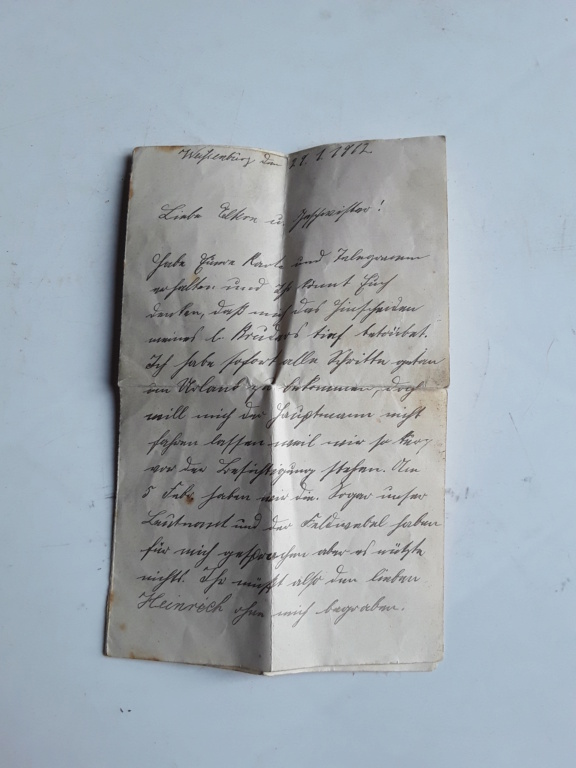 Weißenburg den 21.1.1912
Liebe Eltern u. Geschwister!
Habe Eure Karte und Telegramm
erhalten und Ihr könnt Euch
denken, daß mich das Hinscheiden
meines l. Bruders tief betrübet.
Ich habe sofort alle Schritte getan
um Urlaub zu bekommen, doch
will mich der Hauptmann nicht
fahren lassen weil wir so kurz
vor der Besichtigung stehen. Am
5 Febr. haben wir die. Sogar unser
Leutnant und der Feldwebel haben
für mich gesprochen aber es nützte
nichts. Ihr müßt also den lieben
Heinrich ohne mich begraben.